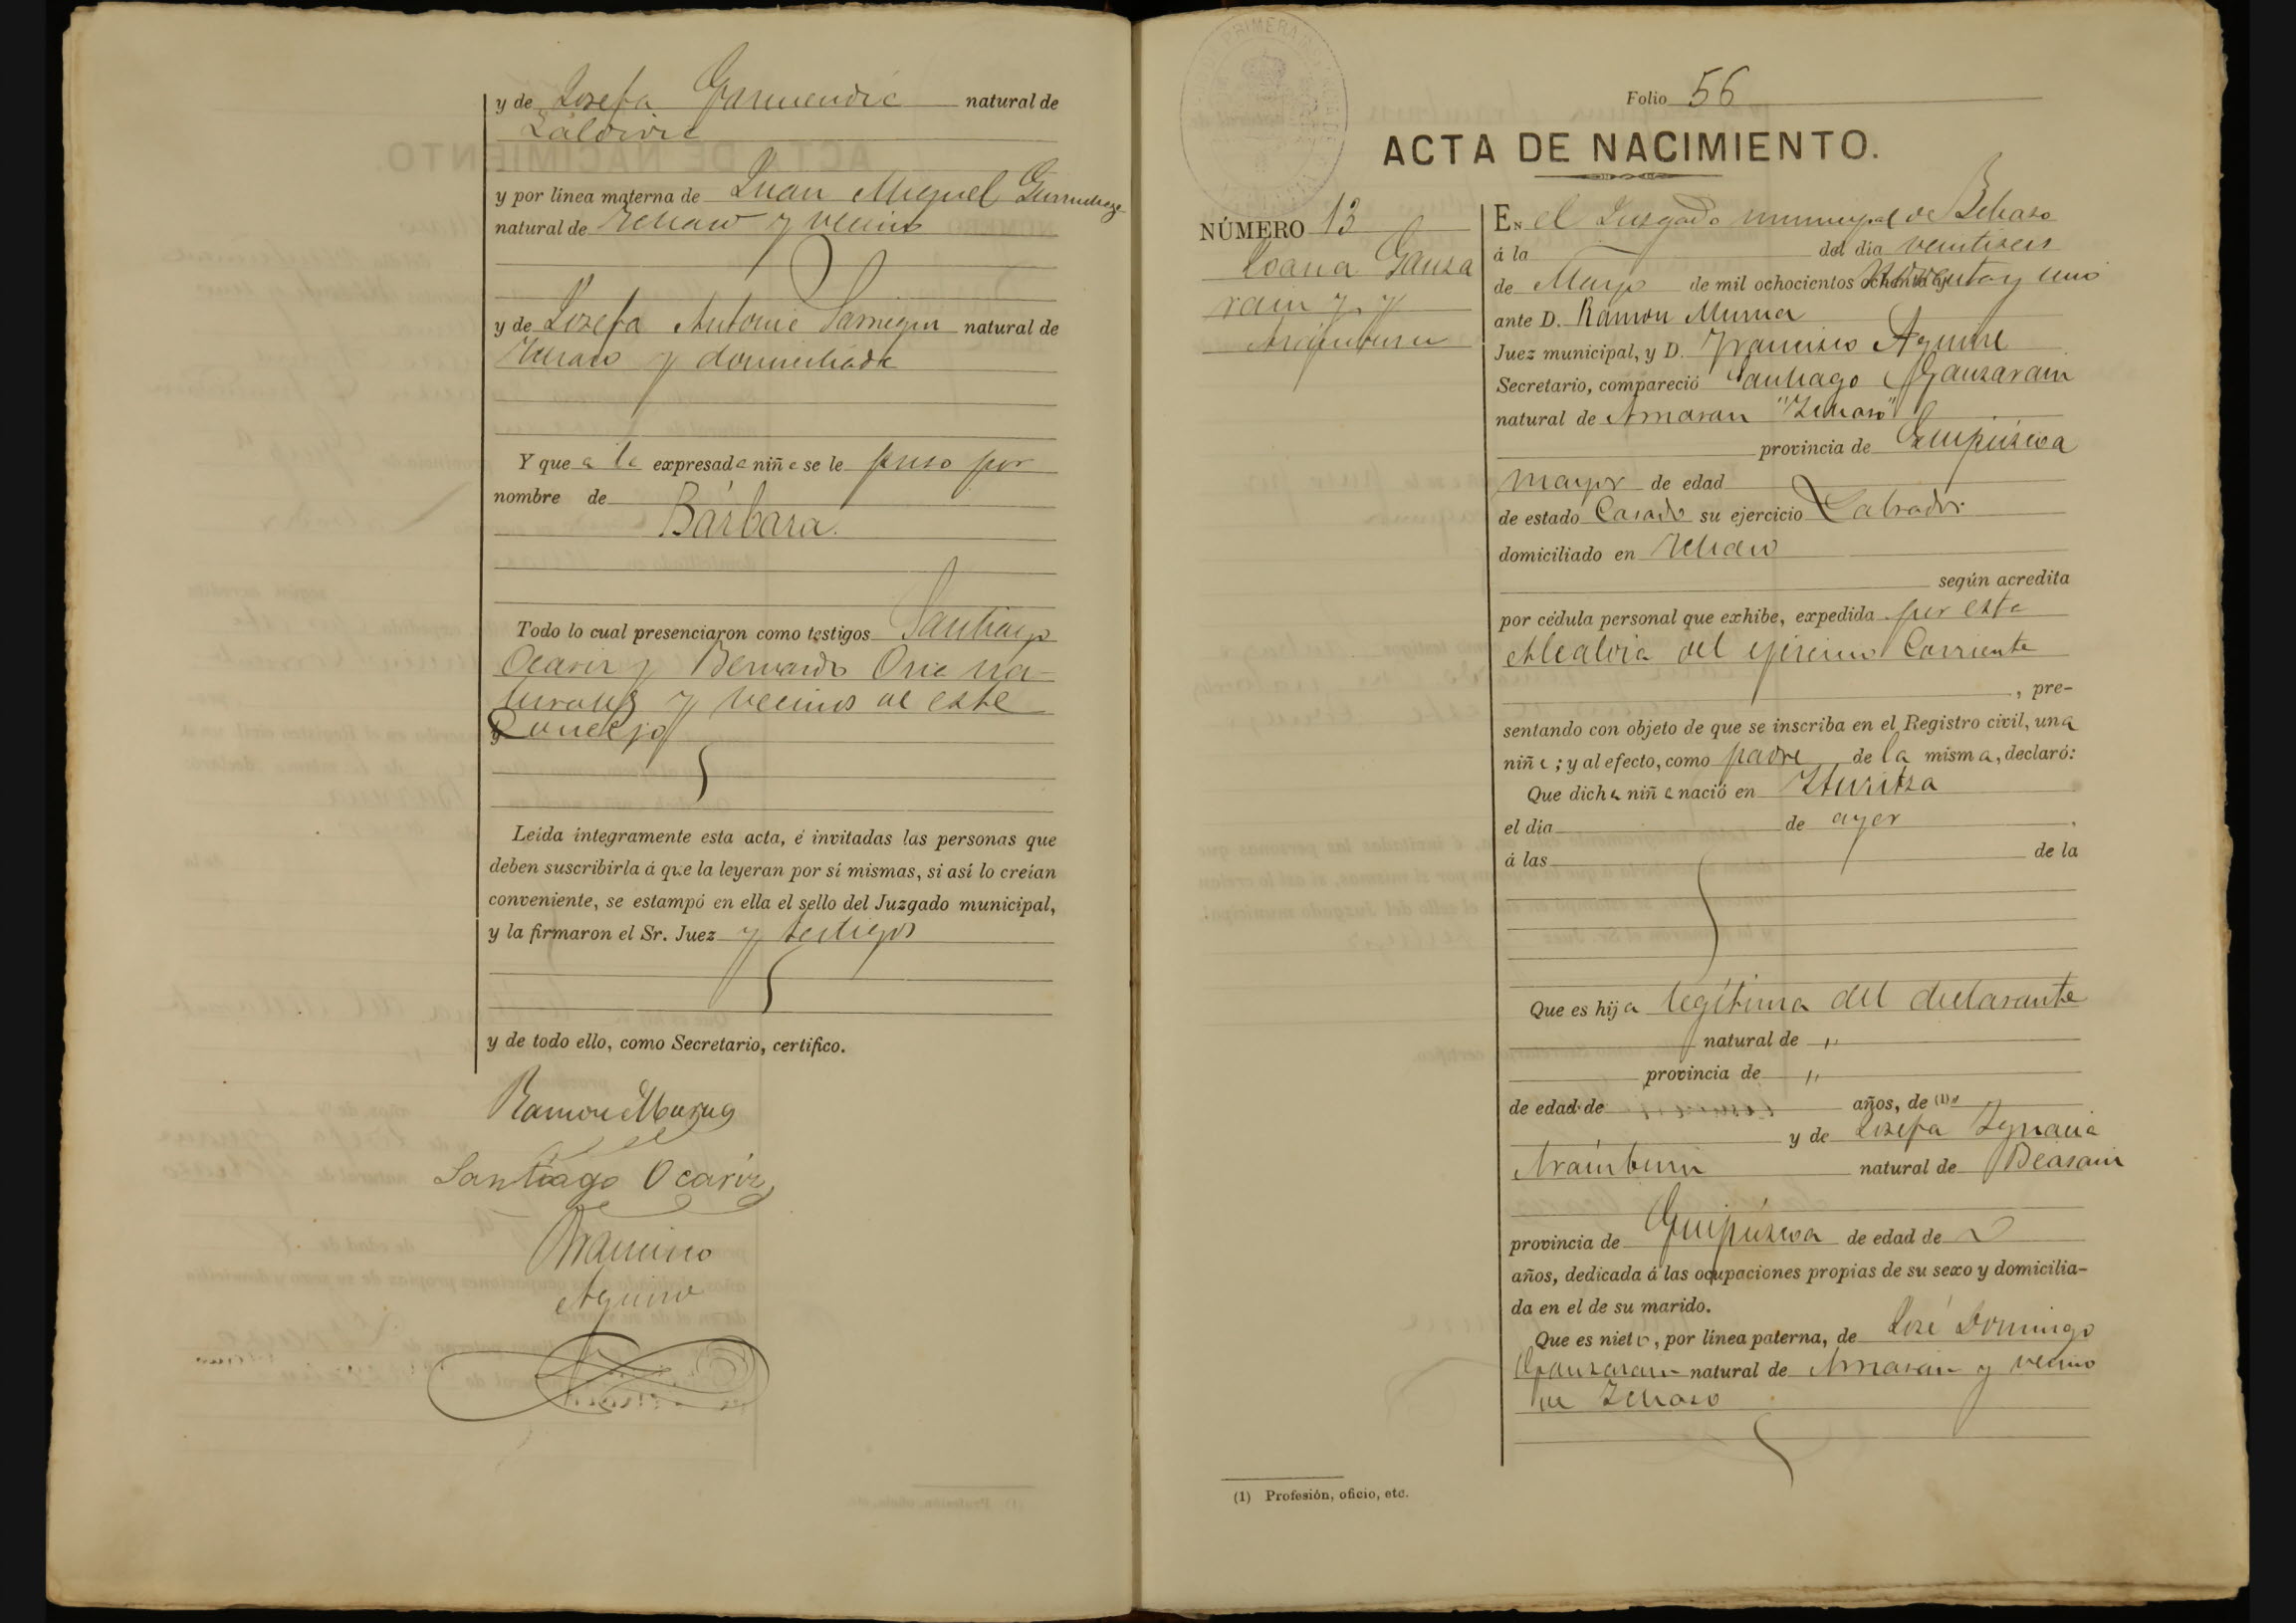 y de Josefa Garmendia natural de
Zaldivia
y por línea materna de Juan Miguel
natural de Ichaso y vecino
y de Josefa Antonia Sarriegui natural de
Ichaso y domiciliada
Y que a la expresada niña se le puso por
nombre de
Bárbara.
Todo lo cual presenciaron como testigos Santiago
Ocariz y Bernardo Oria na-
turales y vecinos de este
Concejo
Leída íntegramente esta acta, é invitadas las personas que
deben suscribirla á que la leyeran por sí mismas, si así lo creían
conveniente, se estampó en ella el sello del Juzgado municipal,
y la firmaron el Sr. Juez y testigos
y de todo ello, como Secretario, certifico.
Ramon Murua
Santiago Ocariz
Francisco
Aguirre
Folio 56
ACTA DE NACIMIENTO.
NÚMERO 13
Joana Gauza
rain y
Aramburu
EN el Juzgado municipal de Ichaso
á la del día veintiseis
de Mayo de mil ochocientos noventa y uno
ante D. Ramon Murua
Juez municipal, y D. Francisco Aguirre
Secretario, compareció Santiago Gauzarain
natural de Arriaran "Ichaso"
provincia de Guipúzcoa
mayor de edad
de estado Casado su ejercicio Labrador
domiciliado en Ichaso
según acredita
por cédula personal que exhibe, expedida por esta
Alcaldia del ejercicio Corriente
, pre-
sentando con objeto de que se inscriba en el Registro civil, una
niña; y al efecto, como padre de la misma, declaró:
Que dicha niña nació en Iturritza
el día de ayer
á las de la
Que es hija legítima del declarante
natural de "
provincia de "
de edad de años, de (1) "
y de Josefa Ignacia
Aramburu natural de Beasain
provincia de Guipúzcoa de edad de
años, dedicada á las ocupaciones propias de su sexo y domicilia-
da en el de su marido.
Que es nieta, por línea paterna, de José Domingo
Gauzarain natural de Arriaran y vecino
de Ichaso
(1) Profesión, oficio, etc.